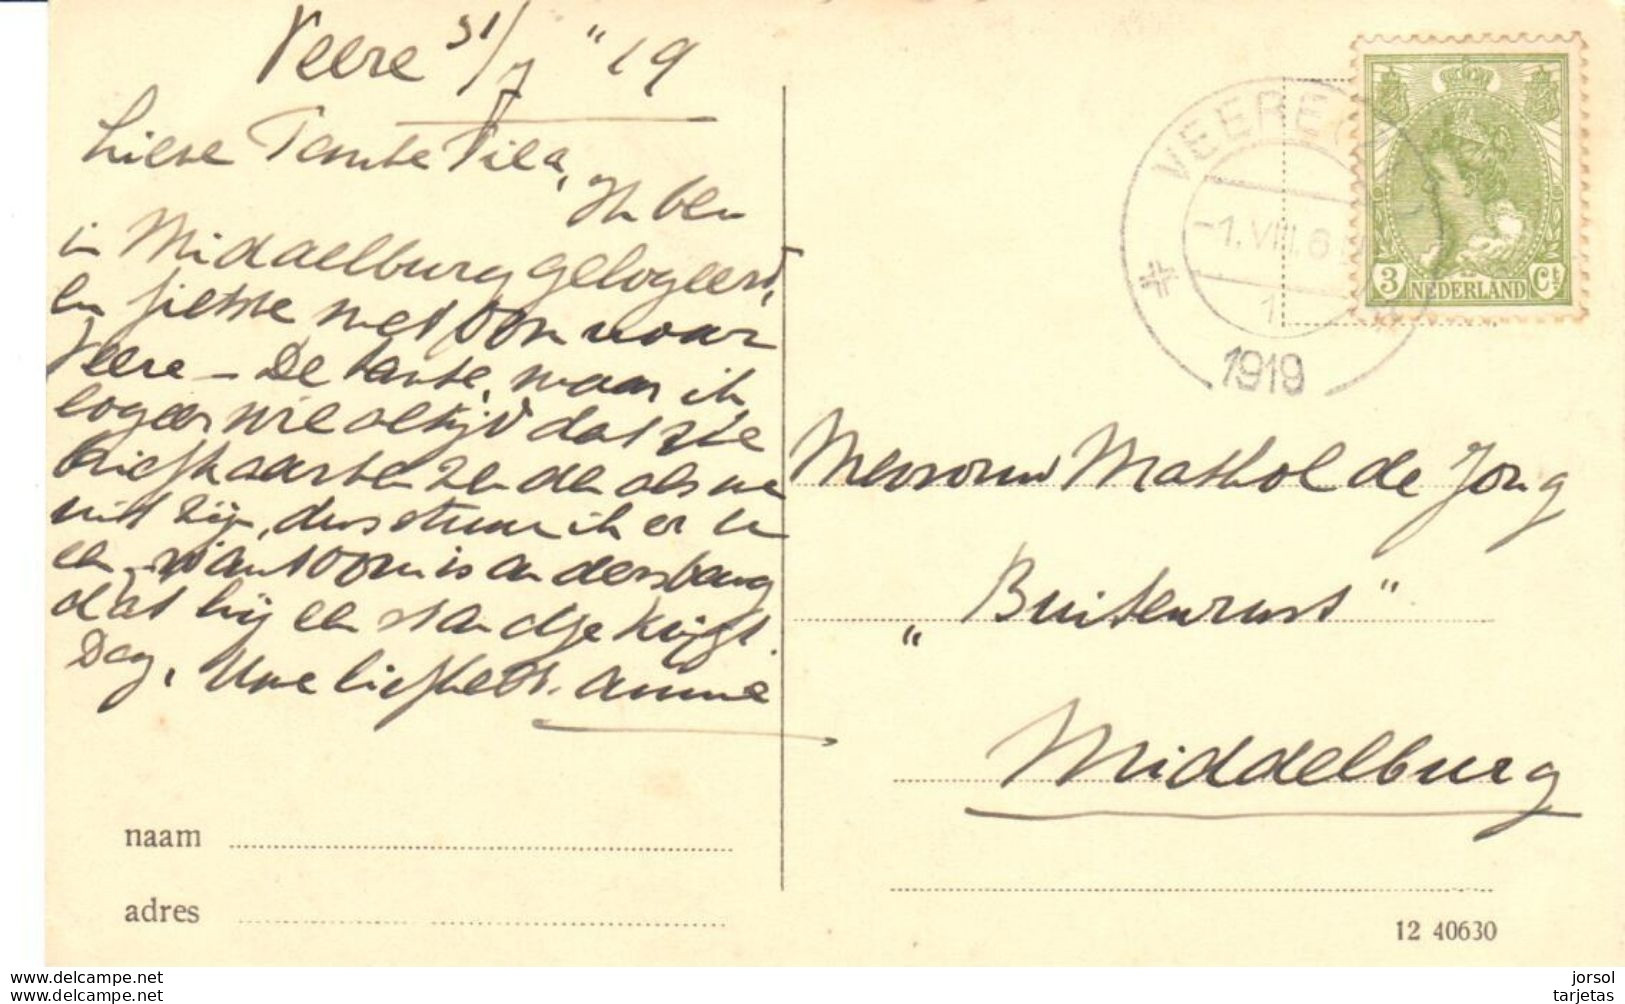 Veere 31/7 "19
Lieve Tante Piea,
Ik ben
in Middelburg gelogeerd,
en fietste met oom naar
Veere - De tante, waar ik
logeer wil altijd dat we
briefkaarten zenden als we
uit zijn, dus stuur ik er u
een, want oom is anders bang
dat hij een standje krijgt.
Dag, Uwe liefhebb. Annie
VEERE
-1.VIII.6
1919
3 NEDERLAND Ct
Mevrouw Mathol de Jong
"Buitenrust"
Middelburg
naam
adres
12 40630
www.delcampe.net
www.delcampe.net
jorsol
tarjetas